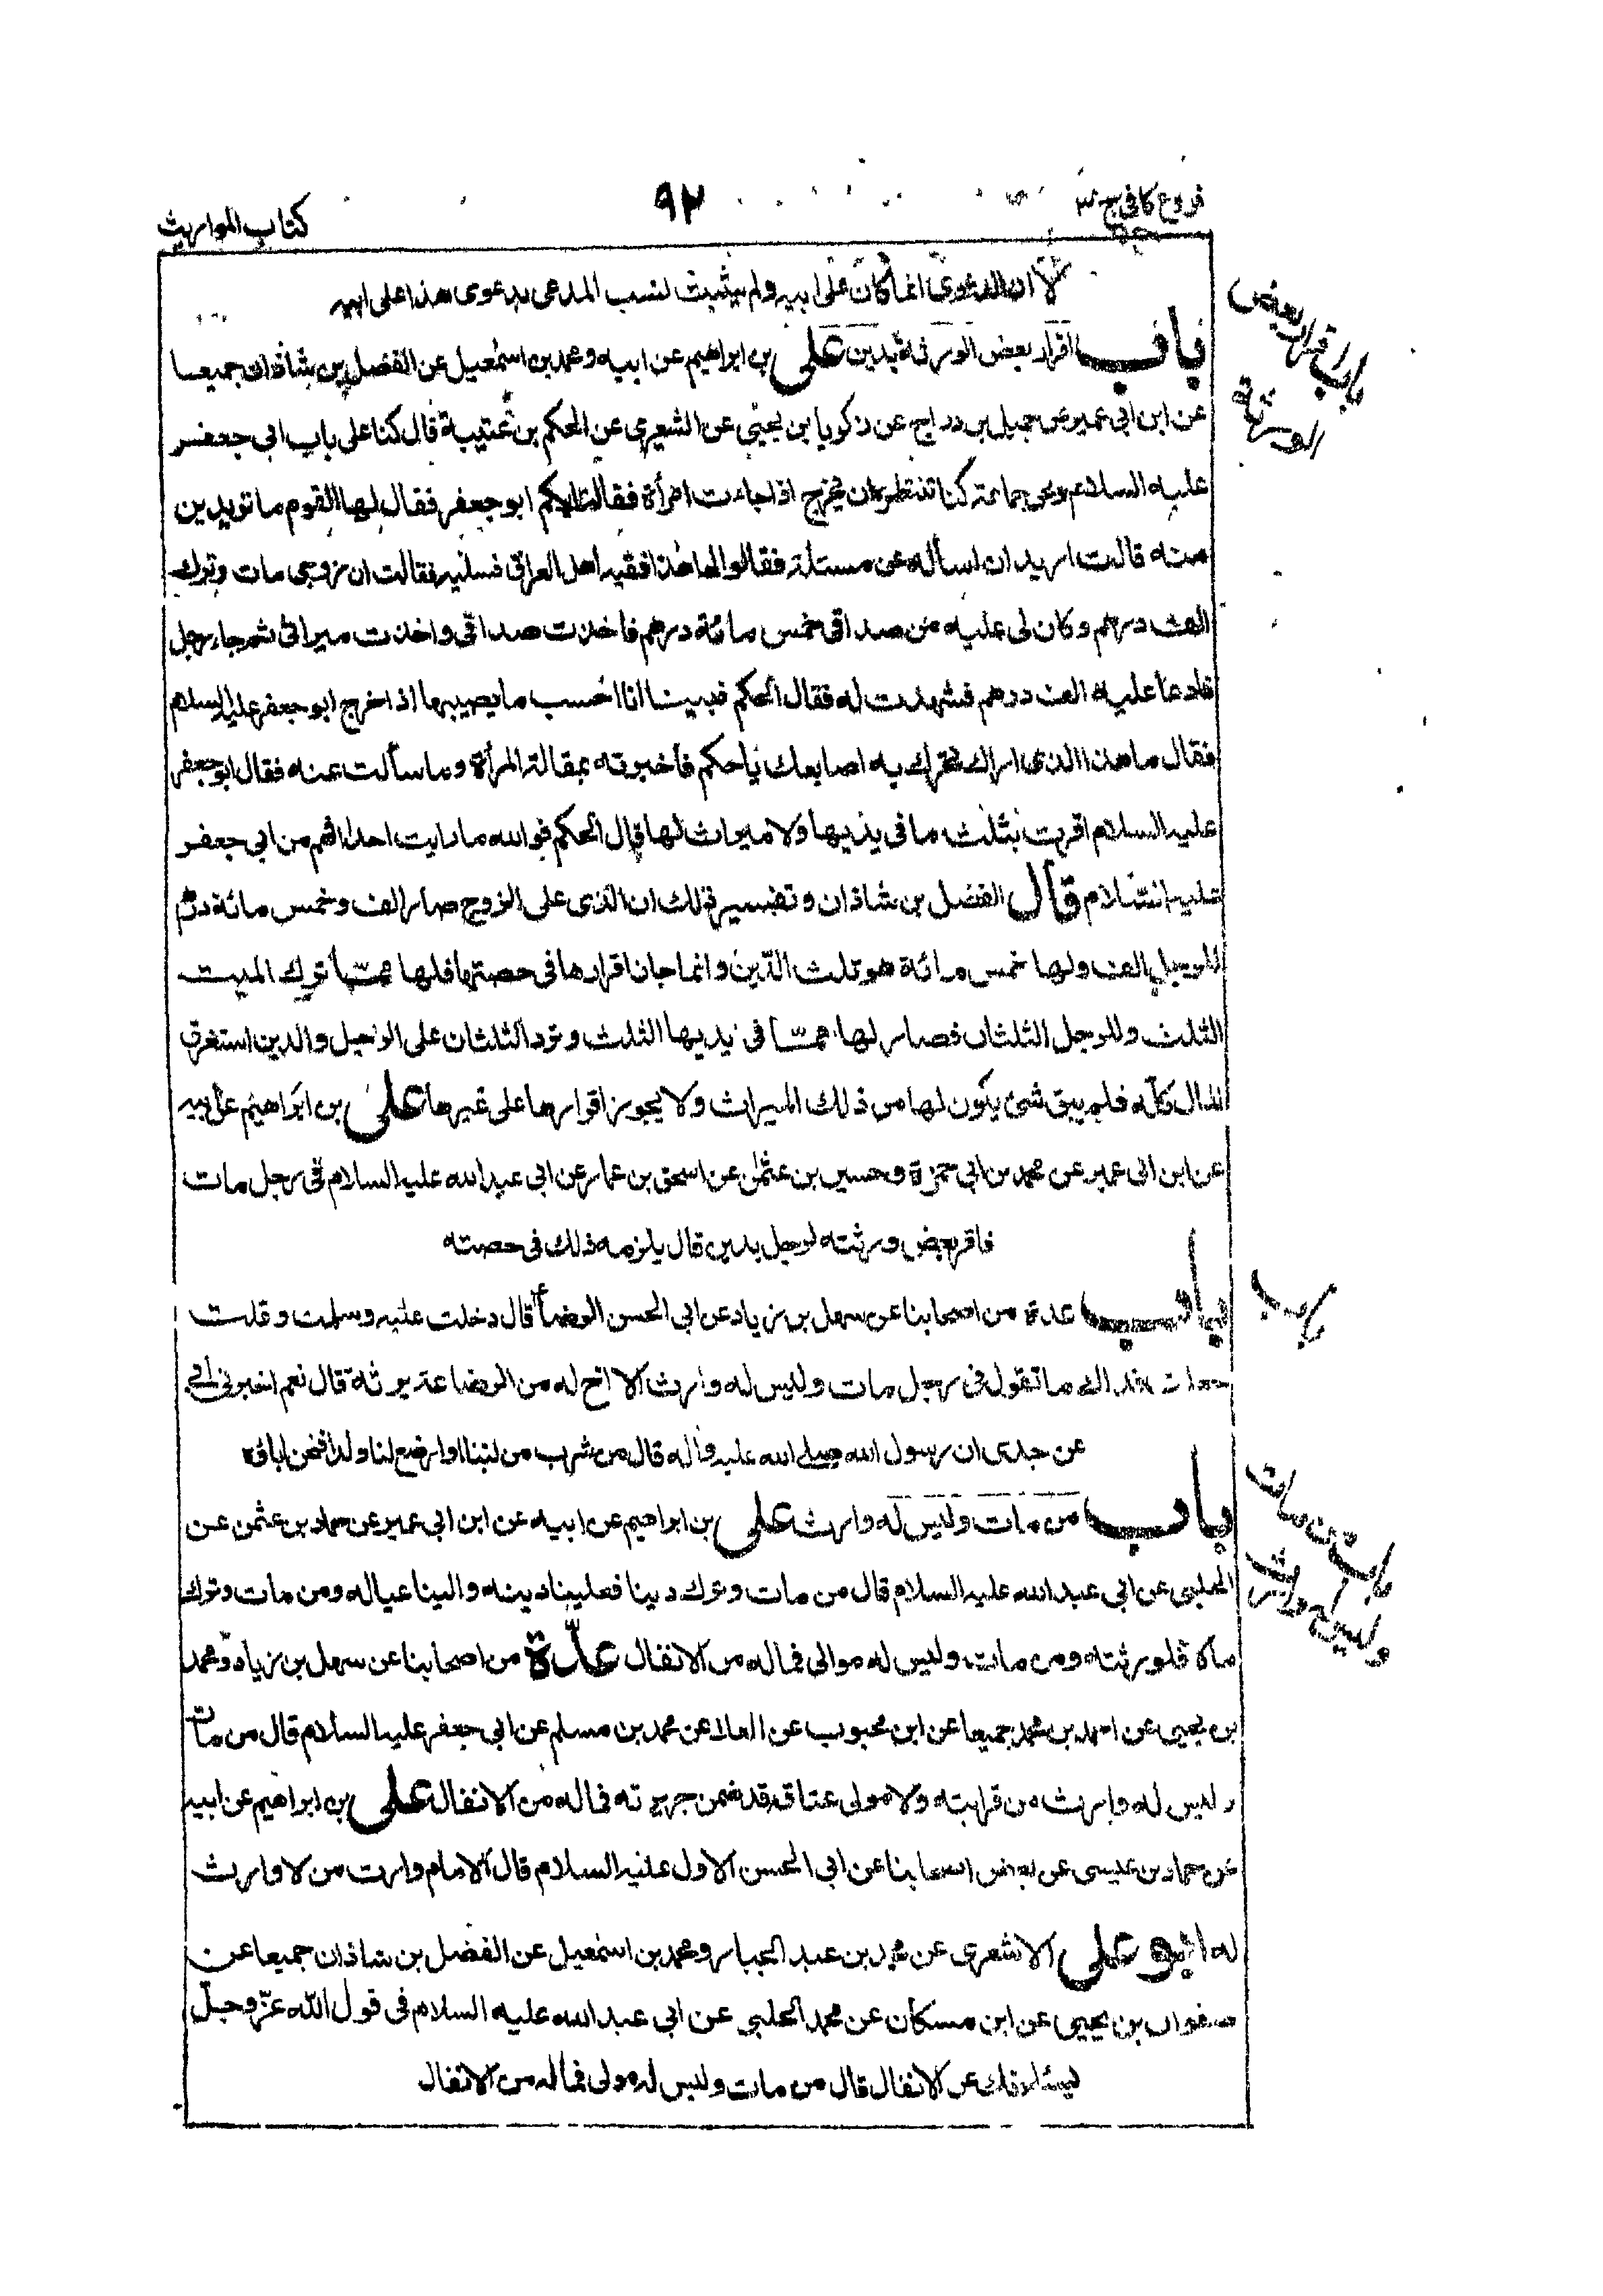 فروع كافى ج ٣
٩٢
كتاب المواريث
لان الدعوى انما كان على ابيه ولم يثبت نسب المدعى بدعوى هذا على ابيه
باب اقرار بعض الورثة بدين على بن ابراهيم عن ابيه ومحمد بن اسمعيل عن الفضل بن شاذان جميعا
عن ابن ابى عمير عن جميل بن دراج عن زكريا بن يحيى عن الشعيرى عن الحكم بن عتيبة قال كنا على باب ابى جعفر
عليه السلام ونحن جماعة كنا ننتظر ان يخرج اذا جاءت امرأة فقالت ايكم ابو جعفر فقال لها القوم ما تريدين
منه قالت اريد ان اسأله عن مسئلة فقالوا لها هذا فقيه اهل العراق فسليه فقالت ان زوجى مات وترك
الف درهم وكان لى عليه من صداقى خمس مائة درهم فاخذت صداقى واخذت ميراثى ثم جاء رجل
فادعا عليه الف درهم فشهدت له فقال الحكم فبينا انا احسب ما يصيبها اذ اخرج ابو جعفر عليه السلم
فقال ما هذا الذى اراك تحرك به اصابعك يا حكم فأخبرته بمقالة المرأة وما سألت عنه فقال ابو جعفر
عليه السلام اقرت بثلث ما فى يديها ولا ميراث لها قال الحكم فوالله ما رايت احدا افهم من ابى جعفر
عليه السلام قال الفضل بن شاذان وتفسير ذلك ان الذى على الزوج صار الف وخمس مائة درهم
للرجل الف ولها خمس مائة هو ثلث الدّين وانما جاز اقرارها فى حصتها فلها ممّا ترك الميت
الثلث وللرجل الثلثان فصار لها ممّا فى يديها الثلث وترد الثلثان على الرجل والدين استغرق
المال كلّه فلم يبق شئ يكون لها من ذلك الميراث ولا يجوز اقرارها على غيرها على بن ابراهيم عن ابيه
عن ابن ابى عمير عن محمد بن ابى حمزة وحسين بن عثمن عن اسحق بن عمار عن ابى عبد الله عليه السلام فى رجل مات
فاقر بعض ورثته لرجل بدين قال يلزمه ذلك فى حصته
باب عدة من اصحابنا عن سهل بن زياد عن ابى الحسن الرضا ع قال دخلت عليه وسلمت وقلت
جعلت فداك ما تقول فى رجل مات وليس له وارث الا اخ له من الرضاعة يرثه قال نعم اخبرنى ابى
عن جدى ان رسول الله صلى الله عليه وآله قال من شرب من لبننا او ارضع لنا ولدا فنحن اباؤه
باب من مات وليس له وارث على بن ابراهيم عن ابيه عن ابن ابى عمير عن حماد بن عثمن عن
الحلبى عن ابى عبد الله عليه السلام قال من مات وترك دينا فعلينا دينه والينا عياله ومن مات وترك
مالا فلورثته ومن مات وليس له موالى فماله من الانفال عدّة من اصحابنا عن سهل بن زياد ومحمد
بن يحيى عن احمد بن محمد جميعا عن ابن محبوب عن العلا عن محمد بن مسلم عن ابى جعفر عليه السلام قال من مات
وليس له وارث من قرابته ولا مولى عتاقه قد ضمن جريرته فماله من الانفال على بن ابراهيم عن ابيه
عن حماد بن عيسى عن بعض اصحابنا عن ابى الحسن الاول عليه السلام قال الامام وارث من لا وارث
له ابو على الاشعرى عن محمد بن عبد الجبار ومحمد بن اسمعيل عن الفضل بن شاذان جميعا عن
صفوان بن يحيى عن ابن مسكان عن محمد الحلبى عن ابى عبد الله عليه السلام فى قول الله عزّ وجلّ
يسئلونك عن الانفال قال من مات وليس له مولى فماله من الانفال
باب اقرار بعض
الورثة
باب
باب من مات
وليس له وارث